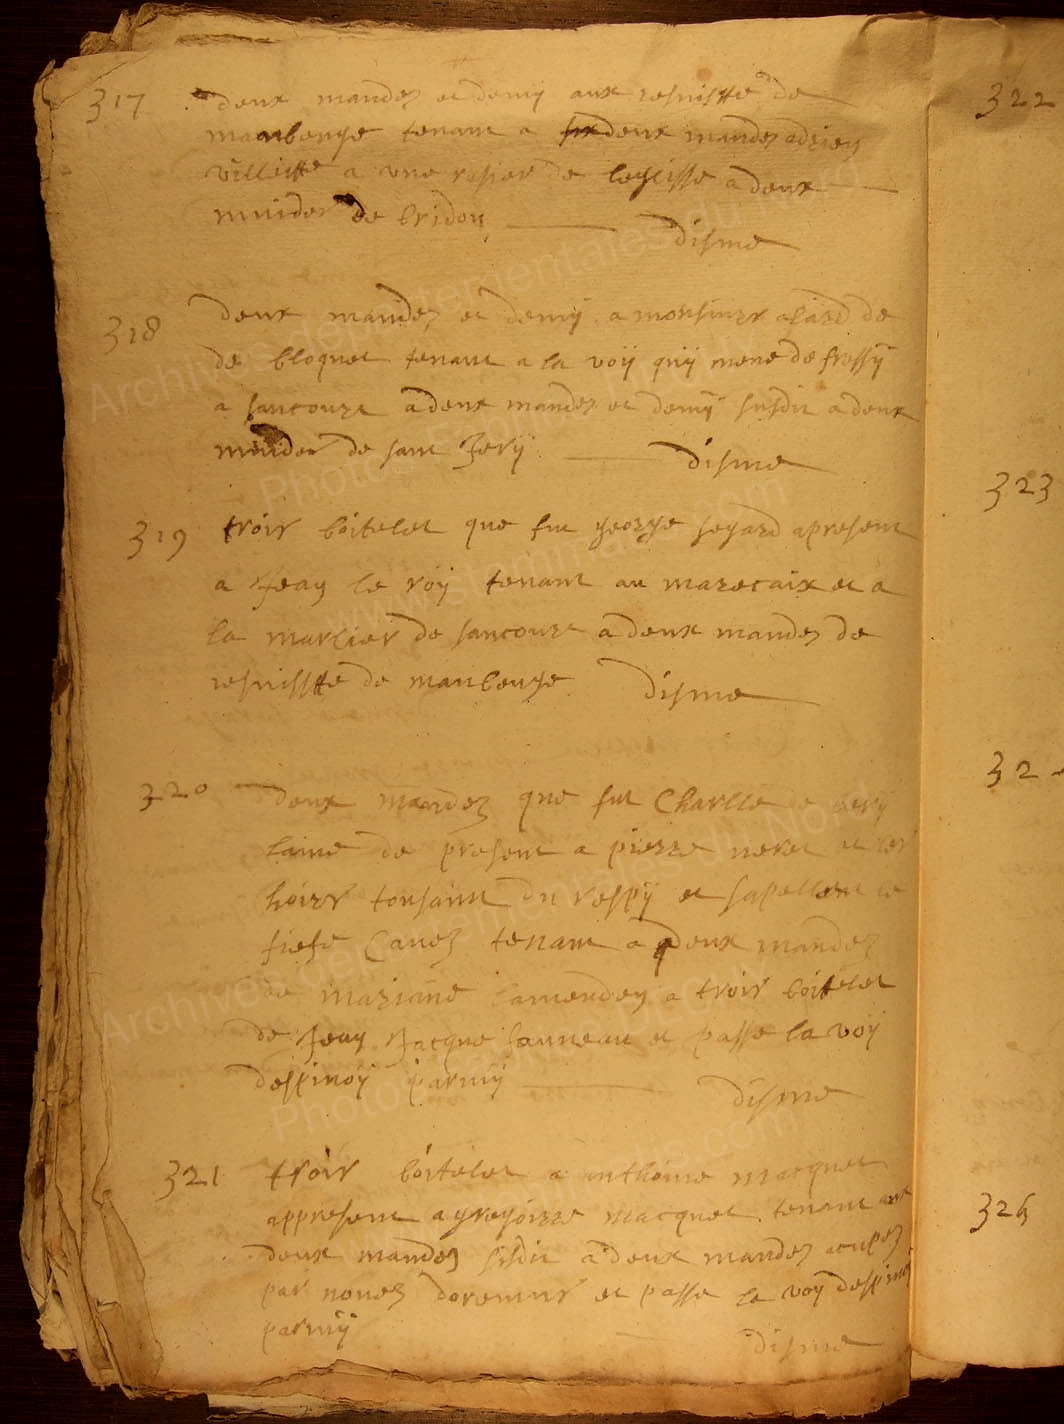 317 deux mandez et demij aux jesuistte de
maubeuge tenant a deux mandez adrien
villiette a une rasier de leglisse a deux
muider de bridou disme
318 deux mandez et demij a monsieur alard de
de bloquet tenant a la voij quij mene de fressij
a sancourt a deux mandez et demij susdit a deux
muider de saint Jerij disme
319 troir boitelet que fut george sohard apresent
a Jean le roij tenant au marecaix et a
la marlier de sancourt a deux mandez de
jesuisstte de maubeuge disme
320 deux mandez que fut Charlle de
laine de present a pierre neret et ses
hoirr tousaint du respij et sapellent le
fiefe Cauez tenant a deux mandez
de mariane lamendey a troir boittelet
de Jean Jacque launeau et passe la voij
despinoij parmij disme
321 troir boitelet a anthoine macquet
appresent a gregoirre macquet tenant aux
deux mandez susdit a deux mandez acupez
par nouez doremus et passe la voij despinoij
parmij disme
322
323
32
325
Archives départementales du Nord
www.stemmatis.com